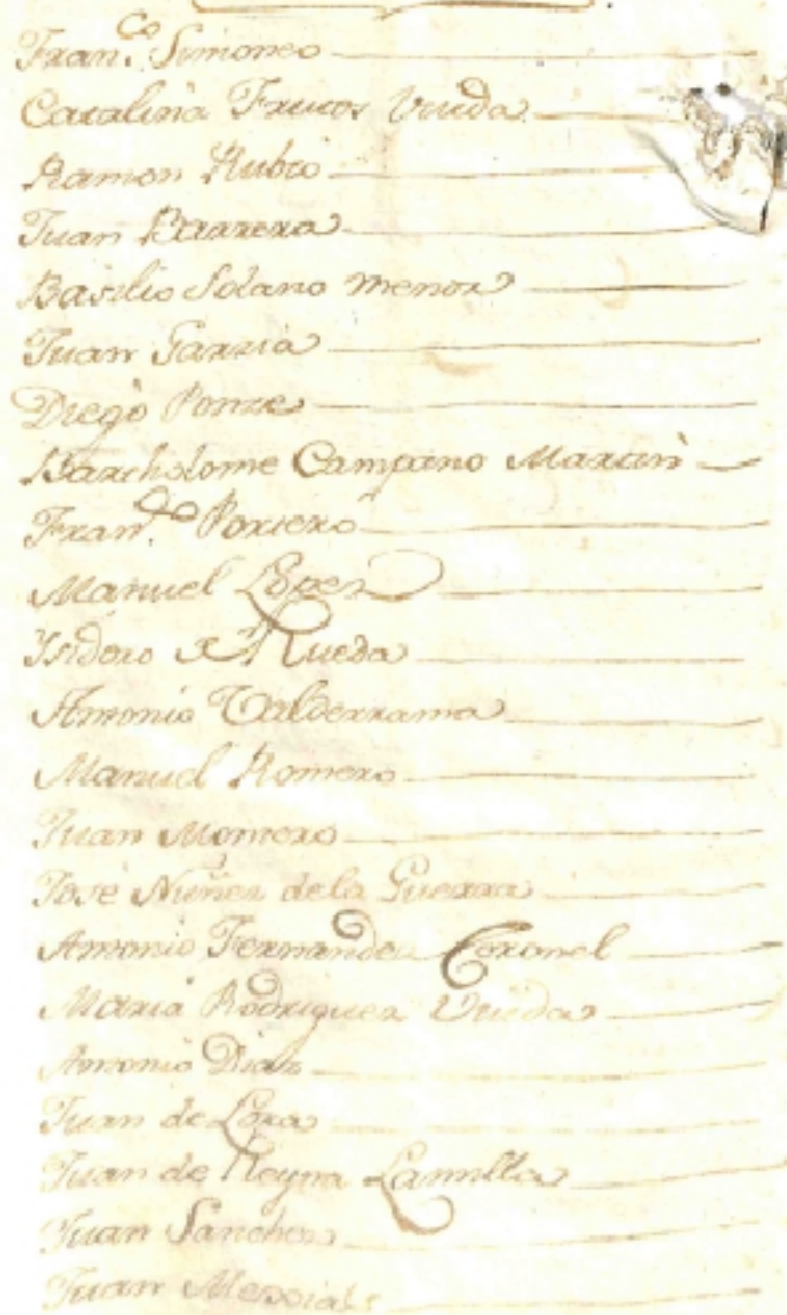 Fran.co Simoneo
Catalina Frutos Viuda
Ramon Rubio
Juan Barrera
Basilio Solano menor
Juan Garzia
Diego Ponze
Bartholome Campano Martin
Fran.co Portero
Manuel Lopez
Ysidoro de Rueda
Antonio Valderrama
Manuel Romero
Juan Montero
José Nuñez dela Guerra
Antonio Fernandez Coronel
Maria Rodriguez Viuda
Antonio Diaz
Juan de Lora
Juan de Reyna
Juan Sanchez
Juan